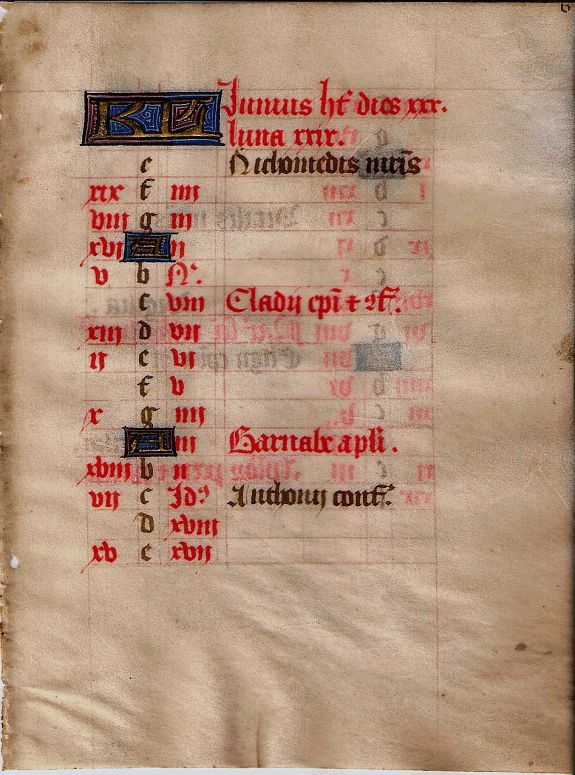 KL Junius ht dies xxx.
luna xxix.
e Nichomedis mris
xix f iiij
viij g iij
xvj A ij
v b N˜.
c viij Cladij epi t cf.
xiij d vij
ij e vj
f v
x g iiij
A iij Barnabe apli.
xviij b ij
vij c Id˜ Anthonij conf.
d xviij
xv e xvij